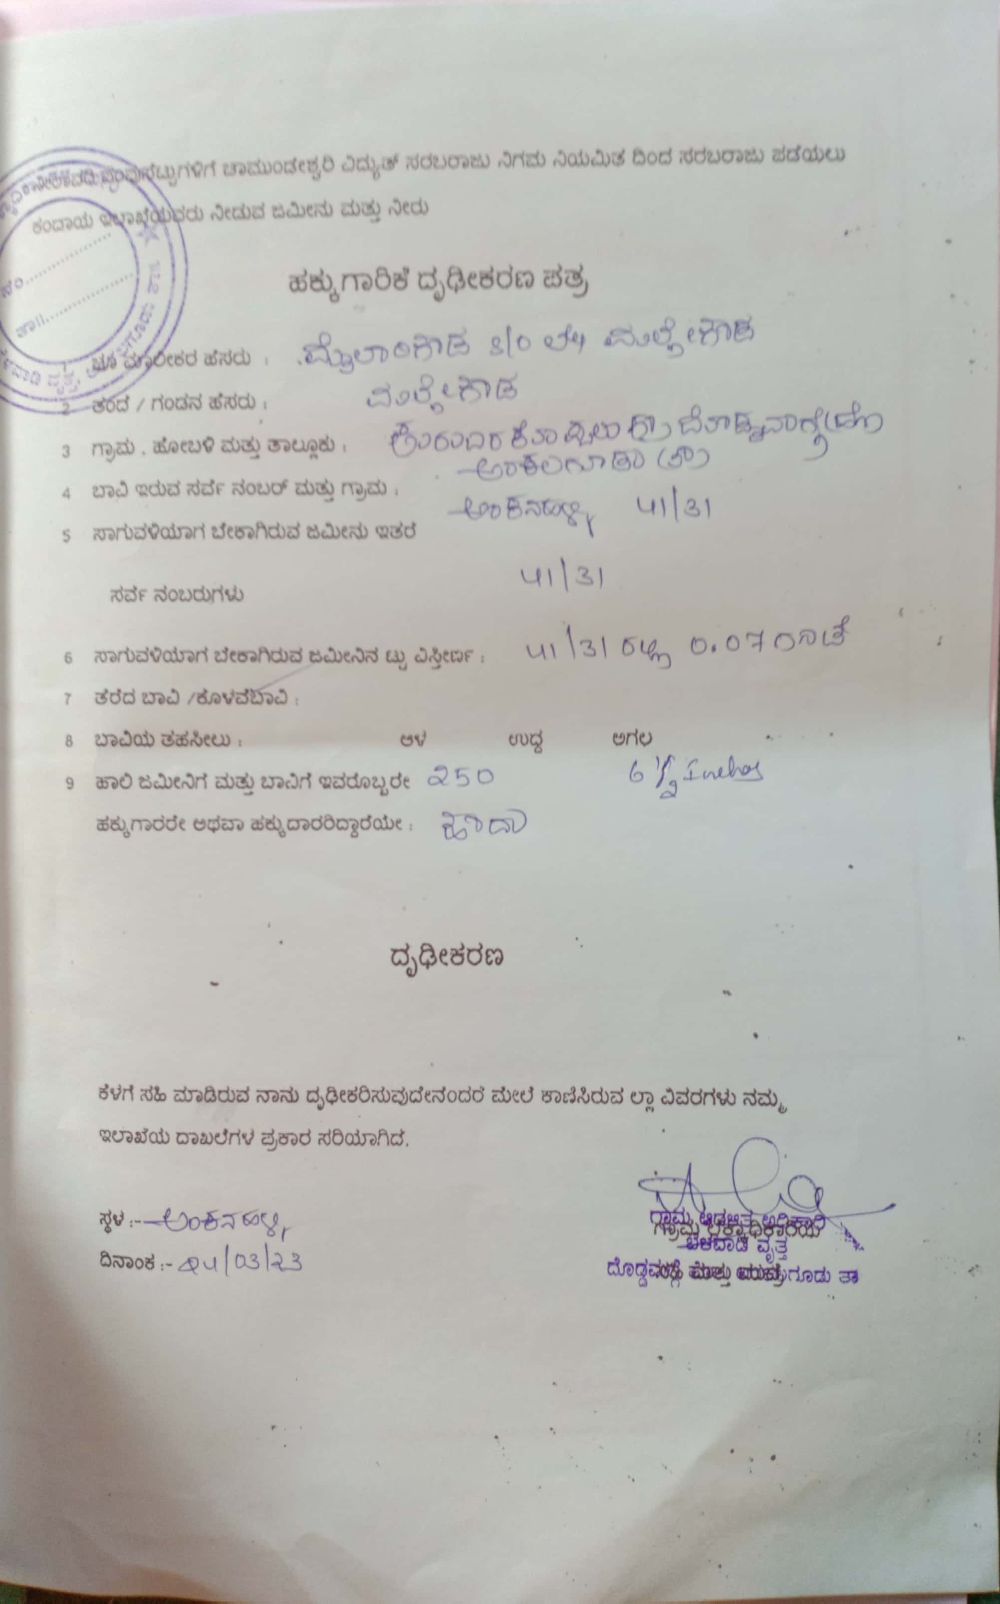 ಚಾಮುಂಡೇಶ್ವರಿ ವಿದ್ಯುತ್ ಸರಬರಾಜು ನಿಗಮ ನಿಯಮಿತ ದಿಂದ ಸರಬರಾಜು ಪಡೆಯಲು
ಕಂದಾಯ ಇಲಾಖೆಯವರು ನೀಡುವ ಜಮೀನು ಮತ್ತು ನೀರು
ಹಕ್ಕುಗಾರಿಕೆ ದೃಢೀಕರಣ ಪತ್ರ
ಹೆಸರು : S/O ಮಲ್ಲೇಗೌಡ
2 ತಂದೆ / ಗಂಡನ ಹೆಸರು : ಮಲ್ಲೇಗೌಡ
3 ಗ್ರಾಮ . ಹೋಬಳಿ ಮತ್ತು ತಾಲ್ಲೂಕು :
ಅರಕಲಗೂಡು (ತಾ)
4 ಬಾವಿ ಇರುವ ಸರ್ವೆ ನಂಬರ್ ಮತ್ತು ಗ್ರಾಮ : ಅಂಕನಹಳ್ಳಿ 41/31
5 ಸಾಗುವಳಿಯಾಗ ಬೇಕಾಗಿರುವ ಜಮೀನು ಇತರೆ
ಸರ್ವೆ ನಂಬರುಗಳು 41/31
6 ಸಾಗುವಳಿಯಾಗ ಬೇಕಾಗಿರುವ ಜಮೀನಿನ ಟ್ಟು ವಿಸ್ತೀರ್ಣ : 41/31 ರಲ್ಲಿ
7 ತೆರೆದ ಬಾವಿ /ಕೊಳವೆಬಾವಿ :
8 ಬಾವಿಯ ತಹಸೀಲು : ಆಳ ಉದ್ದ ಅಗಲ
9 ಹಾಲಿ ಜಮೀನಿಗೆ ಮತ್ತು ಬಾವಿಗೆ ಇವರೊಬ್ಬರೇ 250 6 ½ Inches
ಹಕ್ಕುಗಾರರೇ ಅಥವಾ ಹಕ್ಕುದಾರರಿದ್ದಾರೆಯೇ : ಹೌದು
ದೃಢೀಕರಣ
ಕೆಳಗೆ ಸಹಿ ಮಾಡಿರುವ ನಾನು ದೃಢೀಕರಿಸುವುದೇನಂದರೆ ಮೇಲೆ ಕಾಣಿಸಿರುವ ಲ್ಲಾ ವಿವರಗಳು ನಮ್ಮ
ಇಲಾಖೆಯ ದಾಖಲೆಗಳ ಪ್ರಕಾರ ಸರಿಯಾಗಿದೆ.
ಸ್ಥಳ :- ಅಂಕನಹಳ್ಳಿ
ಗ್ರಾಮ ಆಡಳಿತ ಅಧಿಕಾರಿ
ವೃತ್ತ
ದಿನಾಂಕ :- 24/03/23